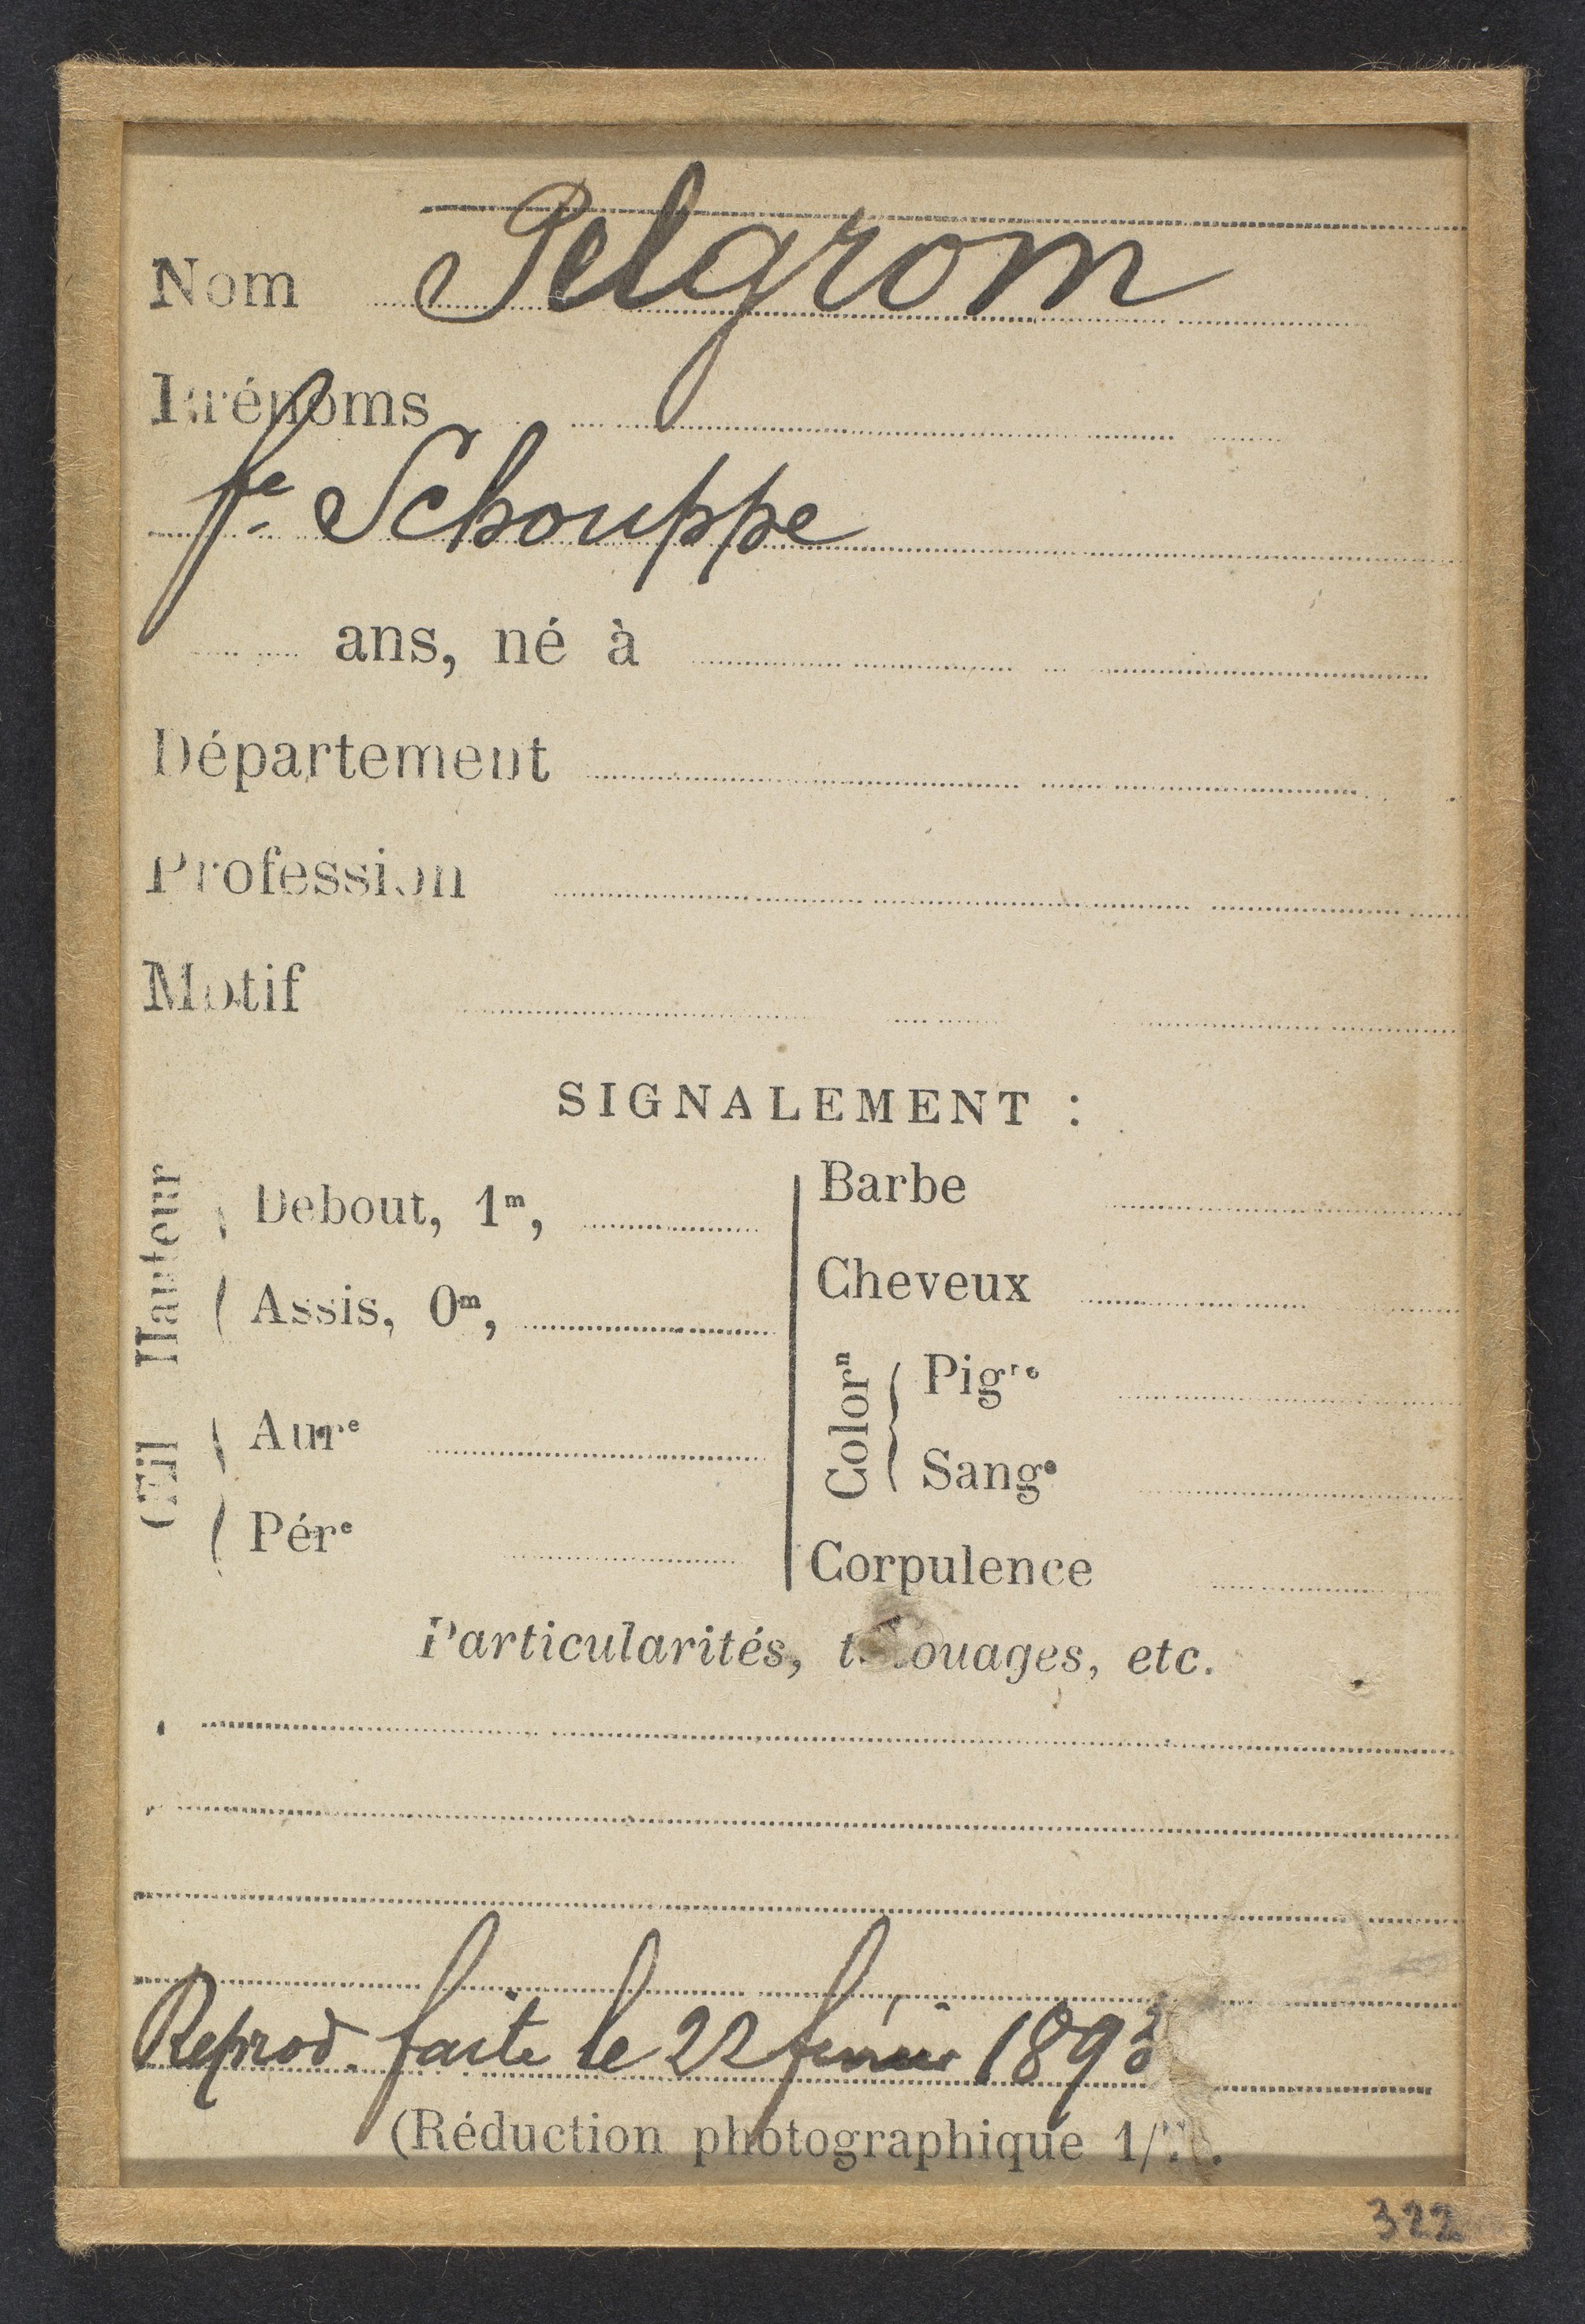 Nom Pelgrom
Prénoms
fe Schouppe
ans, né à
Département
Profession
Motif
SIGNALEMENT :
Hauteur
Debout, 1m,
Assis, 0m,
Œil
Aure
Pére
Barbe
Cheveux
Colorn
Pigre
Sange
Corpulence
Particularités, tatouages, etc.
Reprod. faite le 22 février 1893
(Réduction photographique 1/
322